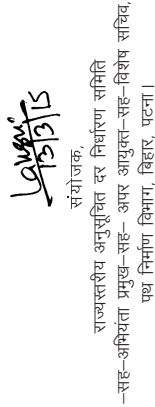 13/3/15
संयोजक,
राज्यस्तरीय अनुसूचित दर निर्धारण समिति
-सह-अभियंता प्रमुख-सह- अपर आयुक्त-सह-विशेष सचिव,
पथ निर्माण विभाग, बिहार, पटना।